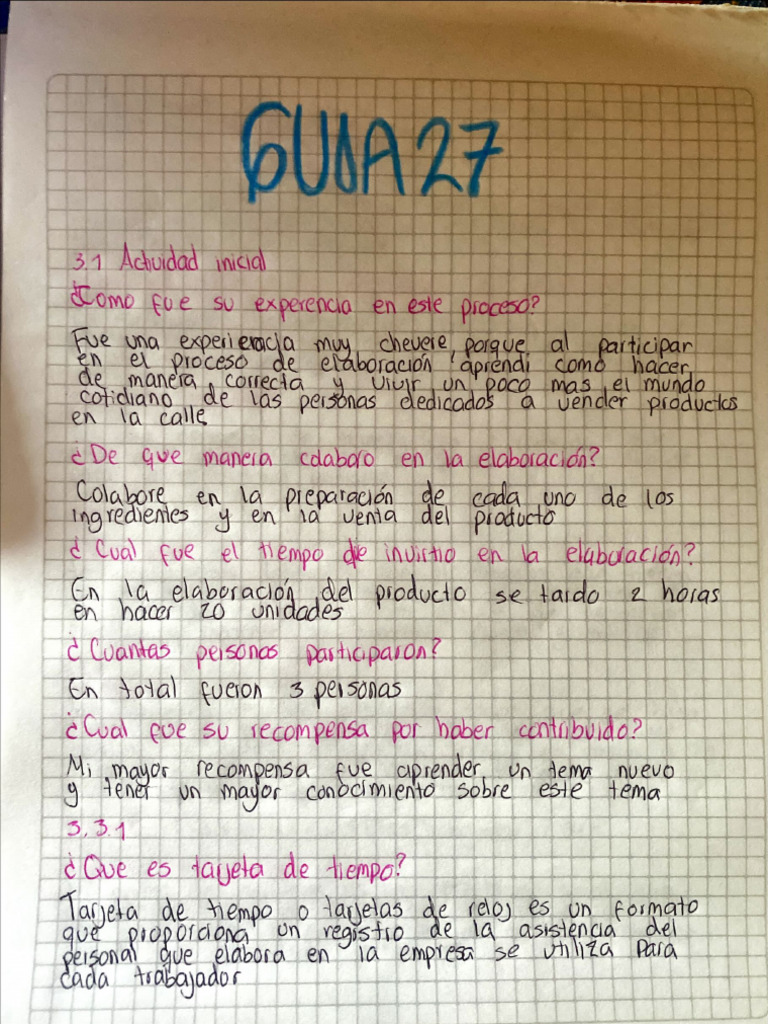 GUIA 27
3.1 Actividad inicial
¿Como fue su experencia en este proceso?
Fue una experiencia muy chevere porque al participar
en el proceso de elaboración aprendi como hacer
de manera correcta y vivir un poco mas el mundo
cotidiano de las personas dedicados a vender productos
en la calle
¿De que manera colaboro en la elaboración?
Colabore en la preparación de cada uno de los
ingredientes y en la venta del producto
¿Cual fue el tiempo de invirtio en la elaboración?
En la elaboración del producto se tardo 2 horas
en hacer 20 unidades
¿Cuantas personas participaron?
En total fueron 3 personas
¿Cual fue su recompensa por haber contribuido?
Mi mayor recompensa fue aprender un tema nuevo
y tener un mayor conocimiento sobre este tema
3.3.1
¿Que es tarjeta de tiempo?
Tarjeta de tiempo o tarjetas de reloj es un formato
que proporciona un registro de la asistencia del
personal que elabora en la empresa se utiliza para
cada trabajador